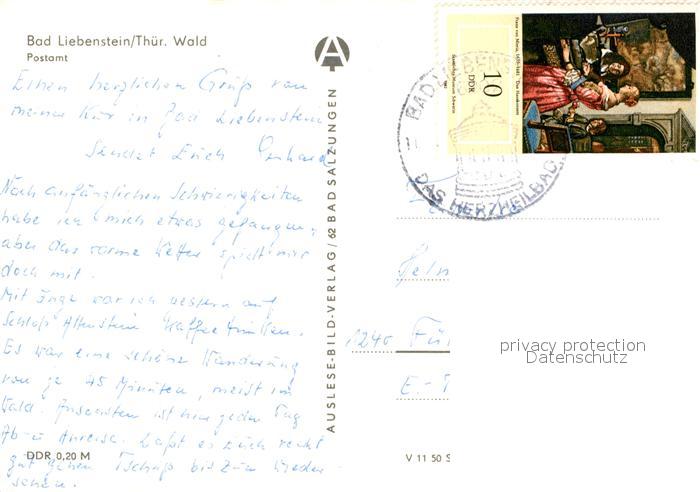 Bad Liebenstein/Thür. Wald
Postamt
Einen herzlichen Gruß von
meiner Kur in Bad Liebenstein
Sendet Euch Gerhard
Nach anfänglichen Schwierigkeiten
habe ich mich etwas gefangen,
aber das warme Wetter spielt mir
doch mit.
Mit Inge war ich gestern auf
Schloß Altenstein Kaffee trinken.
Es war eine schöne Wanderung
von je 45 Minuten, meist im
Wald. Ansonsten ist hier jeden Tag
Ab- u Anreise. Laßt es Euch recht
gut gehen Tschüß bis zum Wieder
sehen.
DDR 0,20 M
AUSLESE-BILD-VERLAG / 62 BAD SALZUNGEN
A
10
DDR
Staatliches Museum Schwerin
BAD LIEBENS
DAS HERZHEILBAD
Helm
1240 Für
E.-T
privacy protection
Datenschutz
V 11 50 S